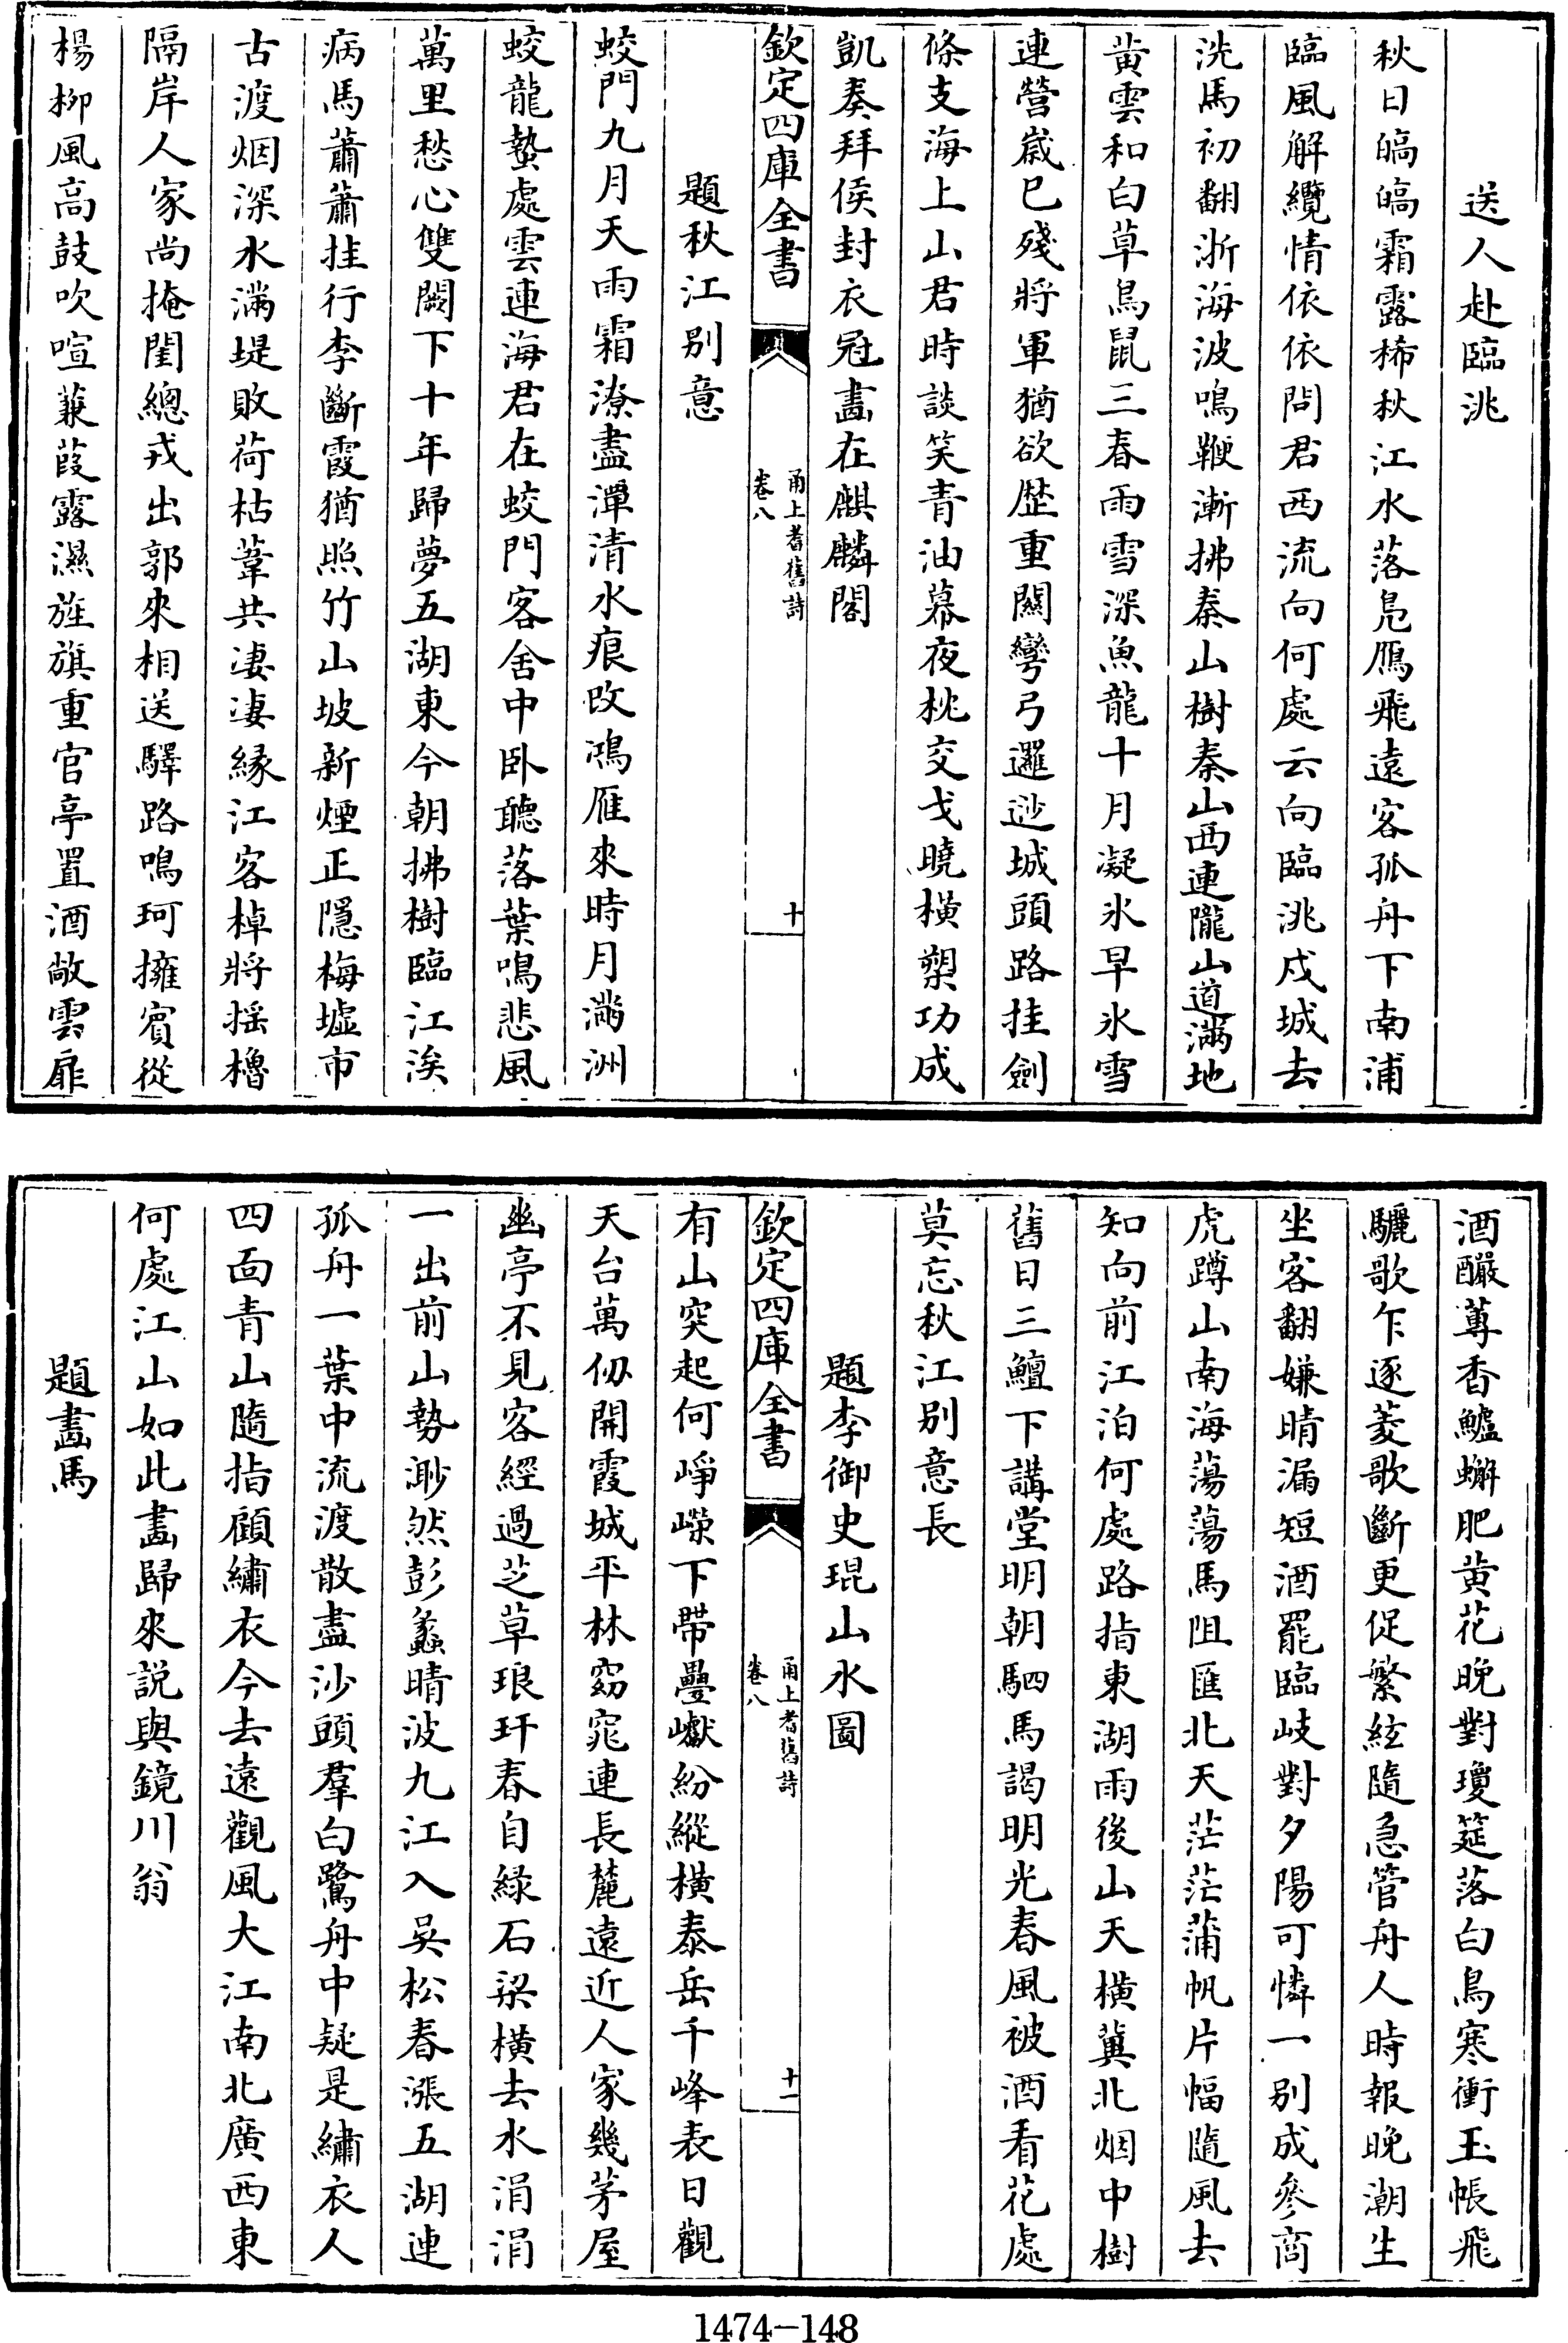 送人赴臨洮
秋日皜皜霜露稀秋江水落鳬鴈飛遠客孤舟下南浦
臨風解纜情依依問君西流向何處云向臨洮戍城去
洗馬初翻浙海波鳴鞭漸拂秦山樹秦山西連隴山道滿地
黄雲和白草鳥鼠三春雨雪深魚龍十月凝氷早氷雪
連營嵗已殘將軍猶欲歴重關彎弓邏逤城頭路挂劍
條支海上山君時談笑青油幕夜枕交戈曉横槊功成
凱奏拜侯封衣冠畫在麒麟閣
欽定四庫全書
甬上耆舊詩
卷八
十
題秋江别意
蛟門九月天雨霜潦盡潭清水痕改鴻雁來時月滿洲
蛟龍蟄處雲連海君在蛟門客舍中卧聽落葉鳴悲風
萬里愁心雙闕下十年歸夢五湖東今朝拂樹臨江涘
病馬蕭蕭挂行李斷霞猶照竹山坡新煙正隱梅墟市
古渡烟深水滿堤敗荷枯葦共凄凄緣江客棹將揺櫓
隔岸人家尚掩閨總戎出郭來相送驛路鳴珂擁賓從
楊柳風髙鼓吹喧蒹葭露濕旌旗重官亭置酒敞雲扉
酒釅蓴香鱸蠏肥黄花晚對瓊筵落白鳥寒衝玉帳飛
驪歌乍逐菱歌斷更促繁絃隨急管舟人時報晚潮生
坐客翻嫌晴漏短酒罷臨岐對夕陽可憐一别成參商
虎蹲山南海蕩蕩馬阻匯北天茫茫蒲帆片幅隨風去
知向前江泊何處路指東湖雨後山天横冀北烟中樹
舊日三鱣下講堂明朝駟馬謁明光春風被酒看花處
莫忘秋江别意長
題李御史琨山水圖
欽定四庫全書
甬上耆舊詩
卷八
十一
有山突起何崢嶸下帶疊巘紛縱横泰岳千峰表日觀
天台萬仭開霞城平林窈窕連長麓遠近人家幾茅屋
幽亭不見客經過芝草琅玕春自緑石梁横去水涓涓
一出前山勢渺然彭蠡晴波九江入吳松春漲五湖連
孤舟一葉中流渡散盡沙頭羣白鷺舟中疑是繡衣人
四面青山隨指顧繡衣今去遠觀風大江南北廣西東
何處江山如此畫歸來説與鏡川翁
題畫馬
1474-148